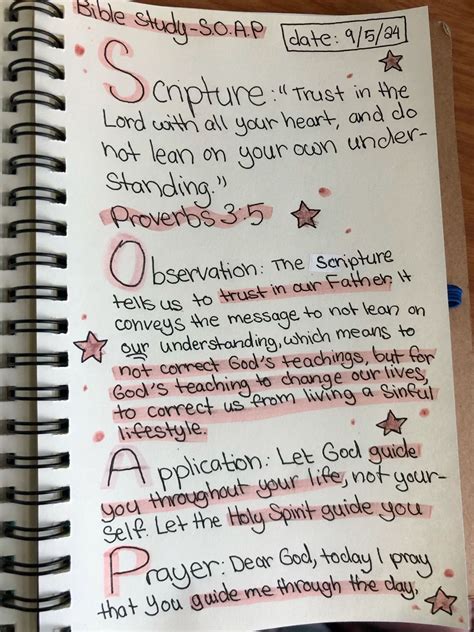 Bible Study-S.O.A.P
date: 9/5/24
Scripture: "Trust in the
Lord with all your heart, and do
not lean on your own under-
standing."
Proverbs 3:5
Observation: The Scripture
tells us to trust in our Father. It
conveys the message to not lean on
our understanding, which means to
not correct God's teachings, but for
God's teaching to change our lives,
to correct us from living a Sinful
lifestyle.
Application: Let God guide
you throughout your life, not your-
self. Let the Holy Spirit guide you
Prayer: Dear God, today I pray
that you guide me through the day,